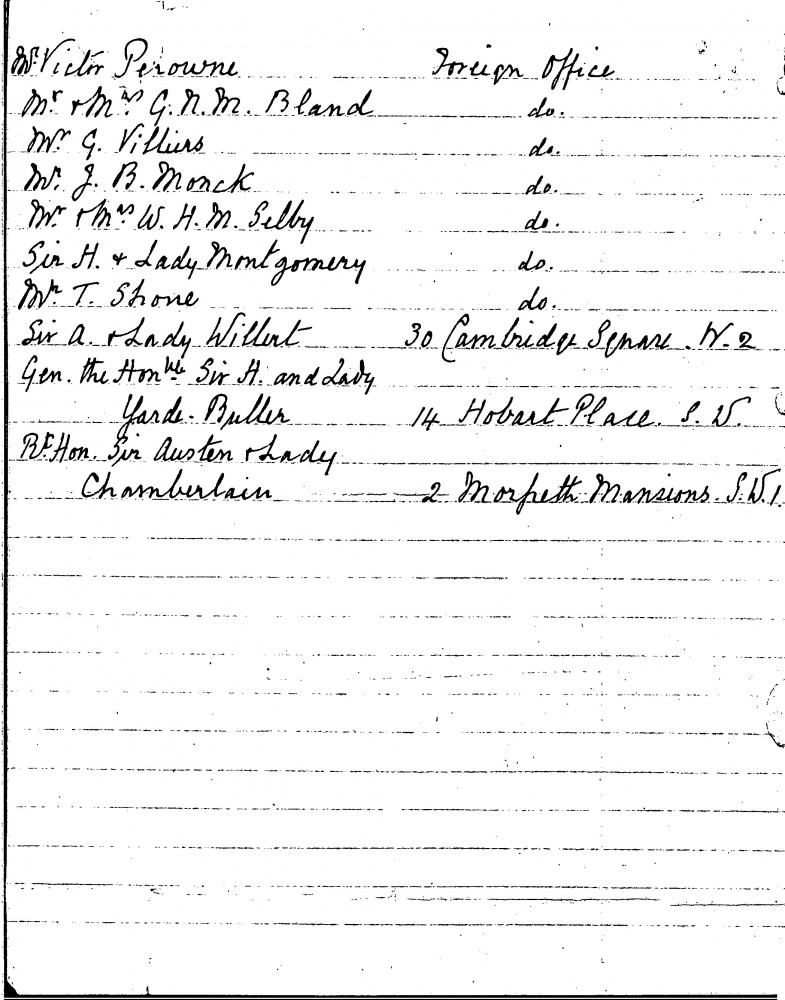 Mr Victor Perowne Foreign Office
Mr & Mrs G. N. M. Bland do.
Mr G. Villiers do.
Mr. J. B. Monck do.
Mr. & Mrs W. H. M. Selby do.
Sir H. & Lady Montgomery do.
Mr T. Shone do.
Sir A. & Lady Willert 30 Cambridge Square. W. 2
Gen. the Honble Sir H. and Lady
Yarde-Buller 14 Hobart Place. S. W.
Rt Hon. Sir Austen & Lady
Chamberlain 2 Morpeth Mansions. S. W. 1.